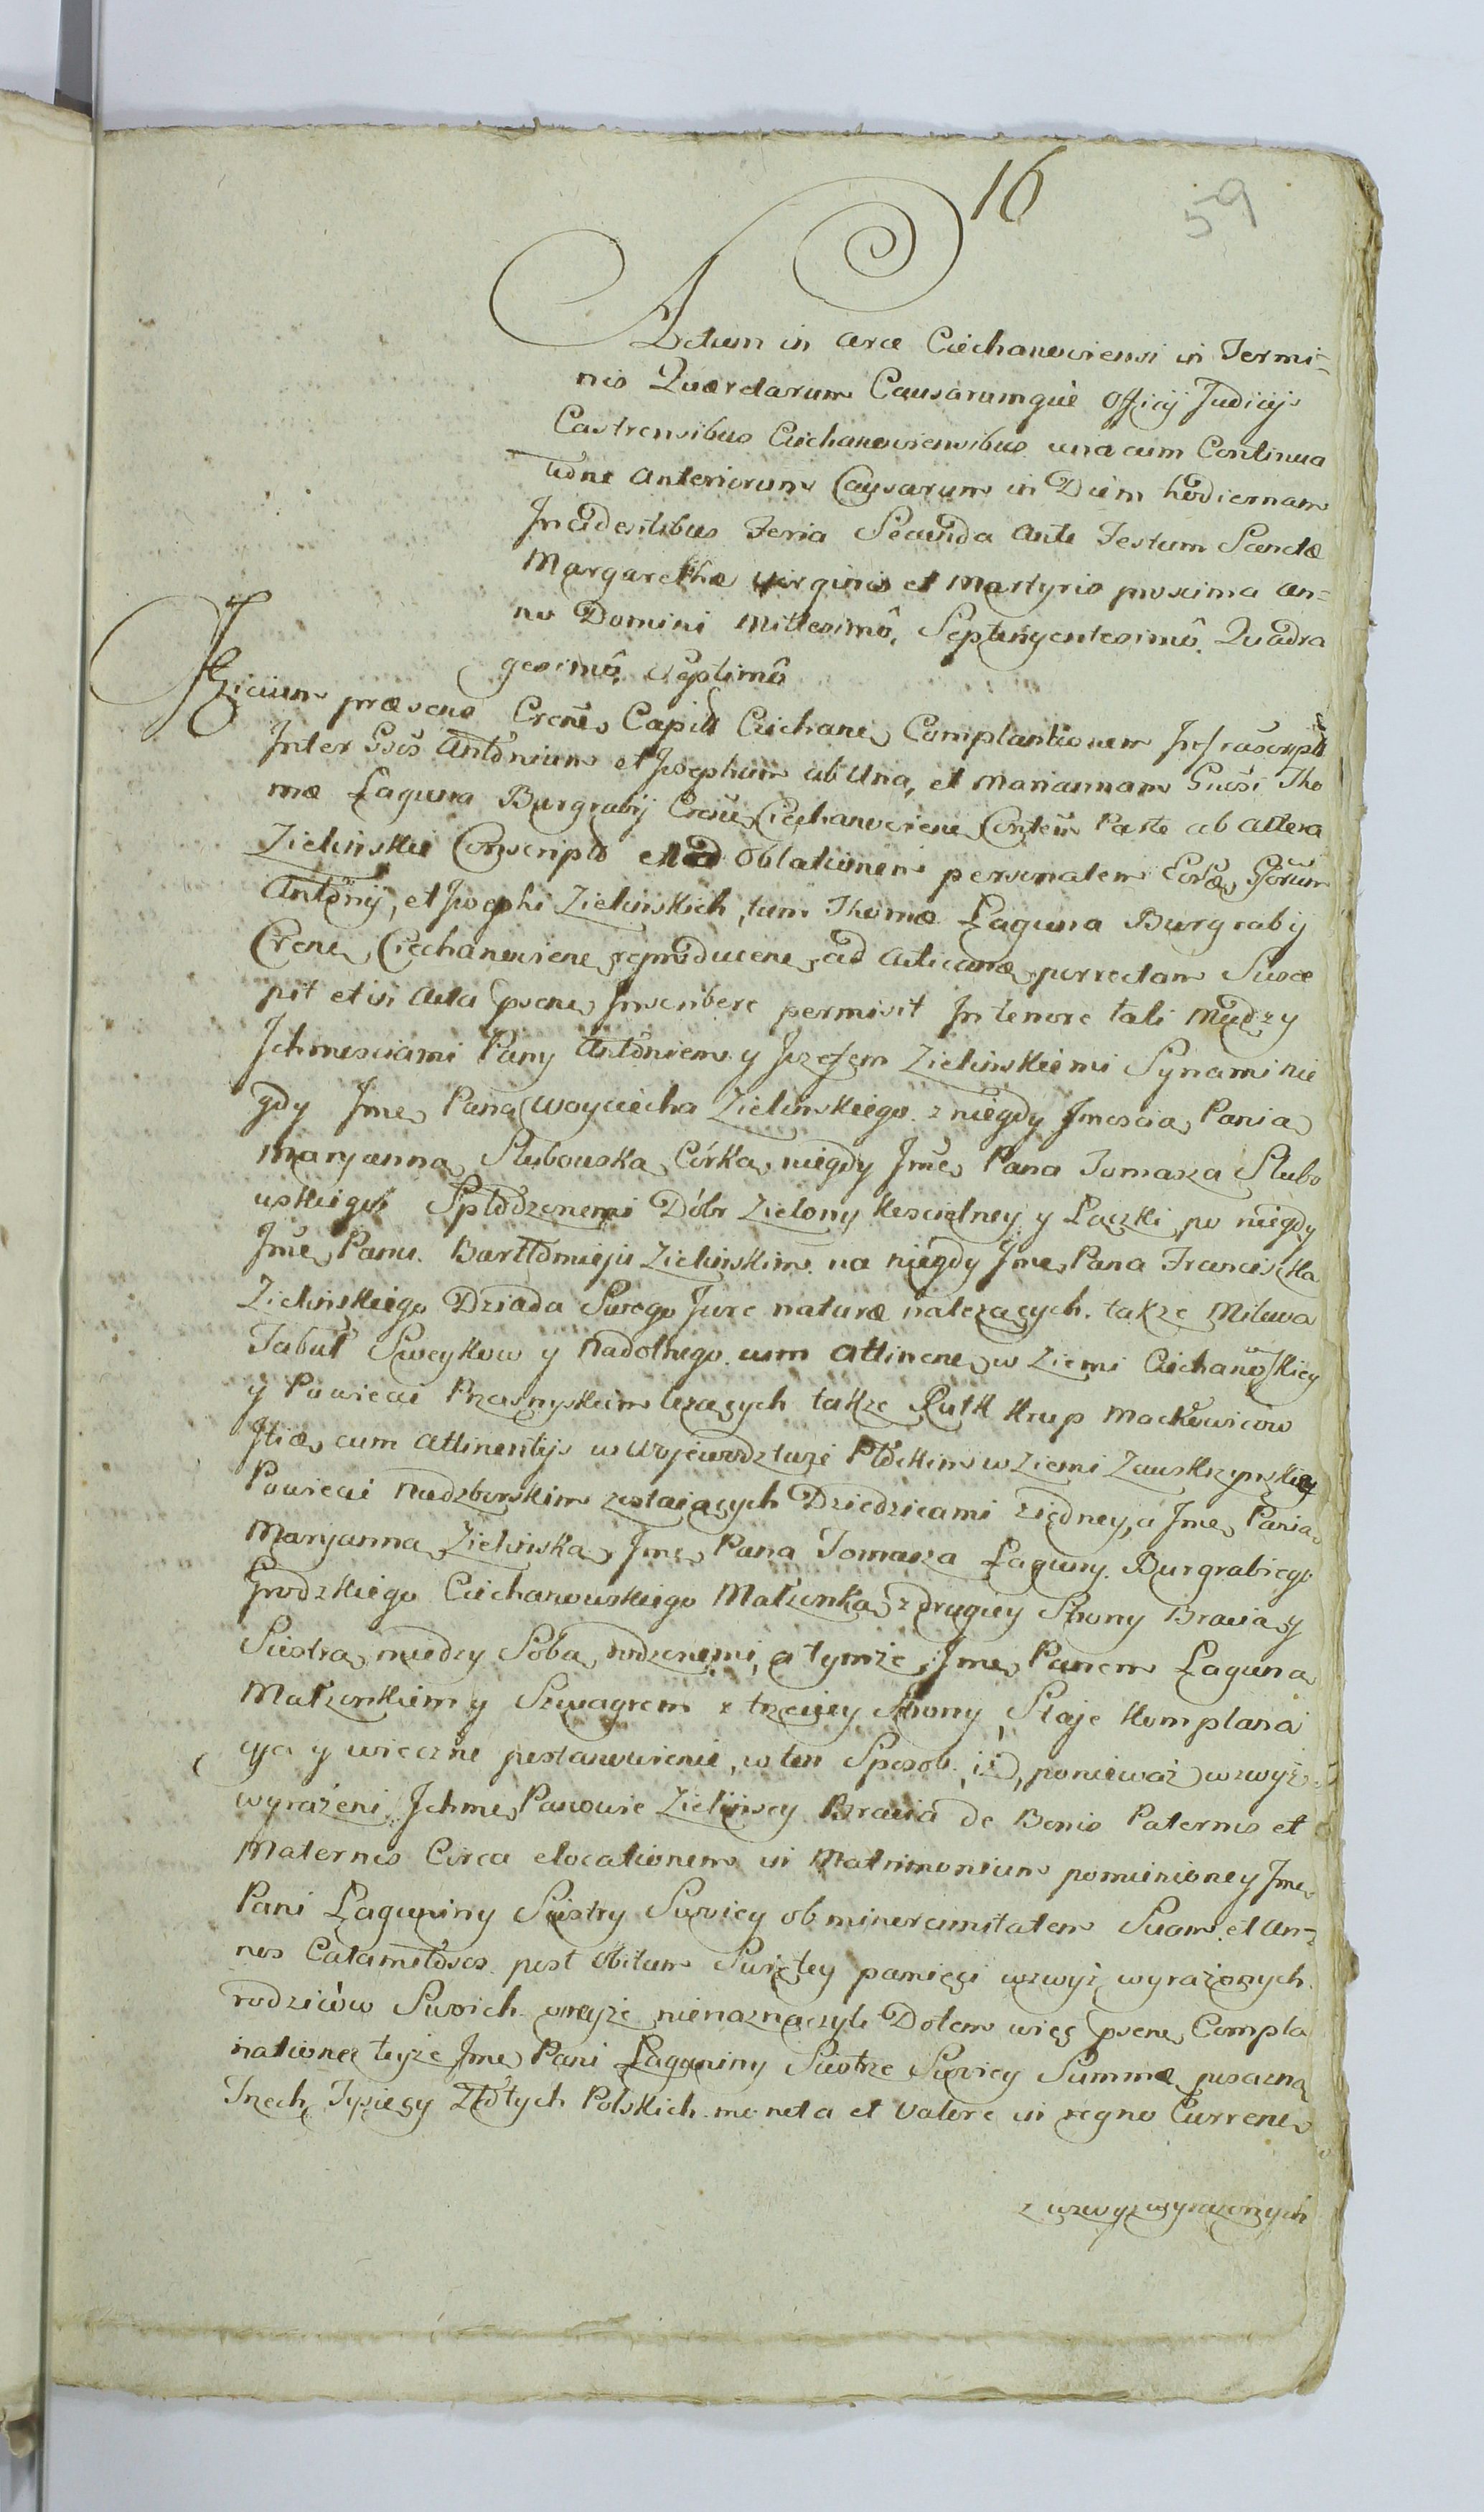 16
59
Actum in Arce Ciechanoviensi in Termi-
nis Querelarum Causarumque Officij Judicijs
Castrensibus Ciechanoviensibus una cum Continua
tione Anteriorum Causarum in Diem hodiernam
Incidentibus Feria Secunda Ante Festum Sanctæ
Margarethæ Virginis et Martyris proxima An-
no Domini Millesimô, Septingentesimô, Quadra
gesimô, Septimô
Officium præsens Crense Capitl Ciechan Complanationem Infrascript
Inter Gsos Antonium et Josephum ab Una, et Mariannam Gnosi Tho
mæ Łaguna Burgrabij Crens Ciechanoviens Contem Parte ab Altera
Zielinskie Conscript et ad Oblationem personalem Eorde Gsorum
Antonij, et Josephi Zielinskich, tum Thomæ Łaguna Burgrabij
Crens Ciechanoviens reproducens ad Acticand porrectam Susce
pit et in Acta psens Inscribere permisit In tenore tali Między
Ichmosciami Pany Antoniem y Jozefem Zielinskiemi Synami nie
gdy Jme Pana Woyciecha Zielinskiego z niegdy Jmoscią Panią
Maryanną Słubowską Córką niegdy Jme Pana Tomasza Słubo
wskiego Spłodzonemi Dóbr Zielony Koscielney y Łączki po niegdy
Jme Panu Bartłomieju Zielinskim na niegdy Jme Pana Franciszka
Zielinskiego Dziada Swego Jure naturæ należących także Milewa
Tabuł Sweykow y Nadolnego cum Attinens w Ziemi Ciechanoskiey
y Powiecie Przasnyskim leżących także Rutk Krup Mackowicow
Itiæ cum Attinentijs w Wojewodztwie Płockim w Ziemi Zawskrzynskiey
Powiecie Niedzborskim zostaiących Dziedzicami z iedney, a Jme Panią
Maryanną Zielinską Jme Pana Tomasza Łaguny Burgrabiego
Grodzkiego Ciechanowskiego Małżonką z drugiey Strony Bracią y
Siostrą między Sobą rodzonemi, a tymże Jme Panem Łaguną
Małżonkiem y Szwagrem z trzeciey Strony, Staje Komplana
cyja y wieczne postanowienie, w ten Sposob, iż, ponieważ wzwyż
wyrażeni Ichme Panowie Zielinscy Bracia de Bonis Paternis et
Maternis Circa elocationem in Matrimonium pomienioney Jme
Pani Łaguniny Siostry Swoiey ob minorennitatem Suam et An-
nos Calamitosos post Obitum Swiętey pamięci wzwyż wyrażonych
rodziców Swoich onejże nienaznaczyli Dotem więc psens Compla
natione teyże Jme Pani Łaguniny Siostrze Swoiey Summę posazną
Trzech Tysięcy Złotych Polskich moneta et Valore in regno Currens
z wzwyż wyrazonych